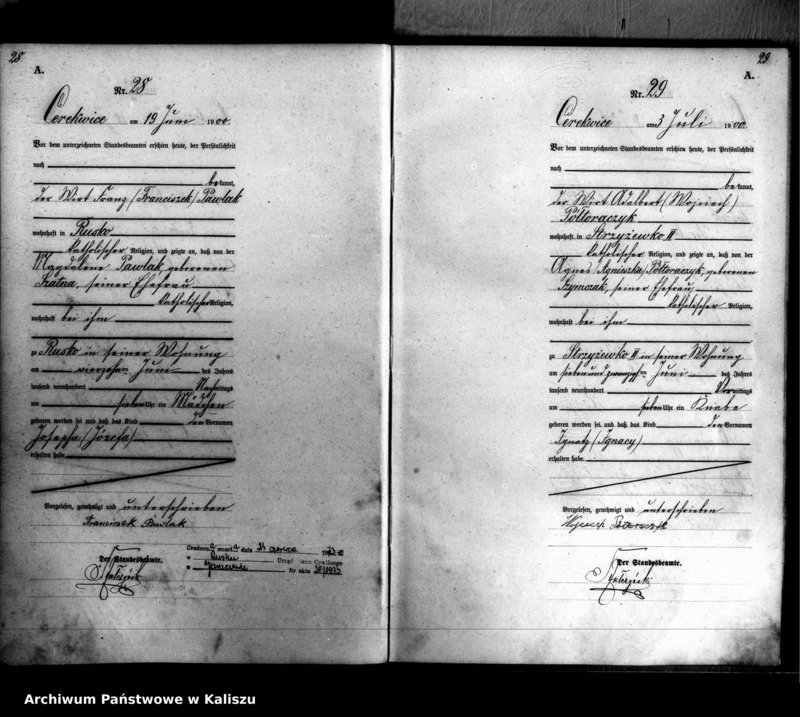 28
A.
Nr. 28
Cerekwice am 19 Juni 1900.
Vor dem unterzeichneten Standesbeamten erschien heute, der Persönlichkeit
nach
bekannt,
der Wirt Franz (Franciszek) Pawlak
wohnhaft in Rusko
katholischer Religion, und zeigte an, daß von der
Magdalene Pawlak, geborenen
Szatna, seiner Ehefrau
katholischer Religion,
wohnhaft bei ihm
zu Rusko in seiner Wohnung
am vierzehnten Juni des Jahres
tausend neunhundert Nachmittags
um sieben Uhr ein Mädchen
geboren worden sei und daß das Kind den Vornamen
Josepha (Józefa)
erhalten habe
Vorgelesen, genehmigt und unterschrieben
Franciszek Pawlak
Der Standesbeamte.
zmarła dnia 24 czerwca 1973
w Rusku
Urząd Stanu Cywilnego
w Jaraczewie Nr aktu
29
A.
Nr. 29
Cerekwice am 3 Juli 1900.
Vor dem unterzeichneten Standesbeamten erschien heute, der Persönlichkeit
nach
bekannt,
der Wirt Adalbert (Wojciech)
Półtoraczyk
wohnhaft in Strzyżewko II
katholischer Religion, und zeigte an, daß von der
Agnes (Agnieszka) Półtoraczyk, geborenen
Szymczak, seiner Ehefrau
katholischer Religion,
wohnhaft bei ihm
zu Strzyżewko II in seiner Wohnung
am sieben und zwanzigsten Juni des Jahres
tausend neunhundert Vormittags
um sieben Uhr ein Knabe
geboren worden sei und daß das Kind den Vornamen
Ignatz (Ignacy)
erhalten habe
Vorgelesen, genehmigt und unterschrieben
Der Standesbeamte.
Archiwum Państwowe w Kaliszu